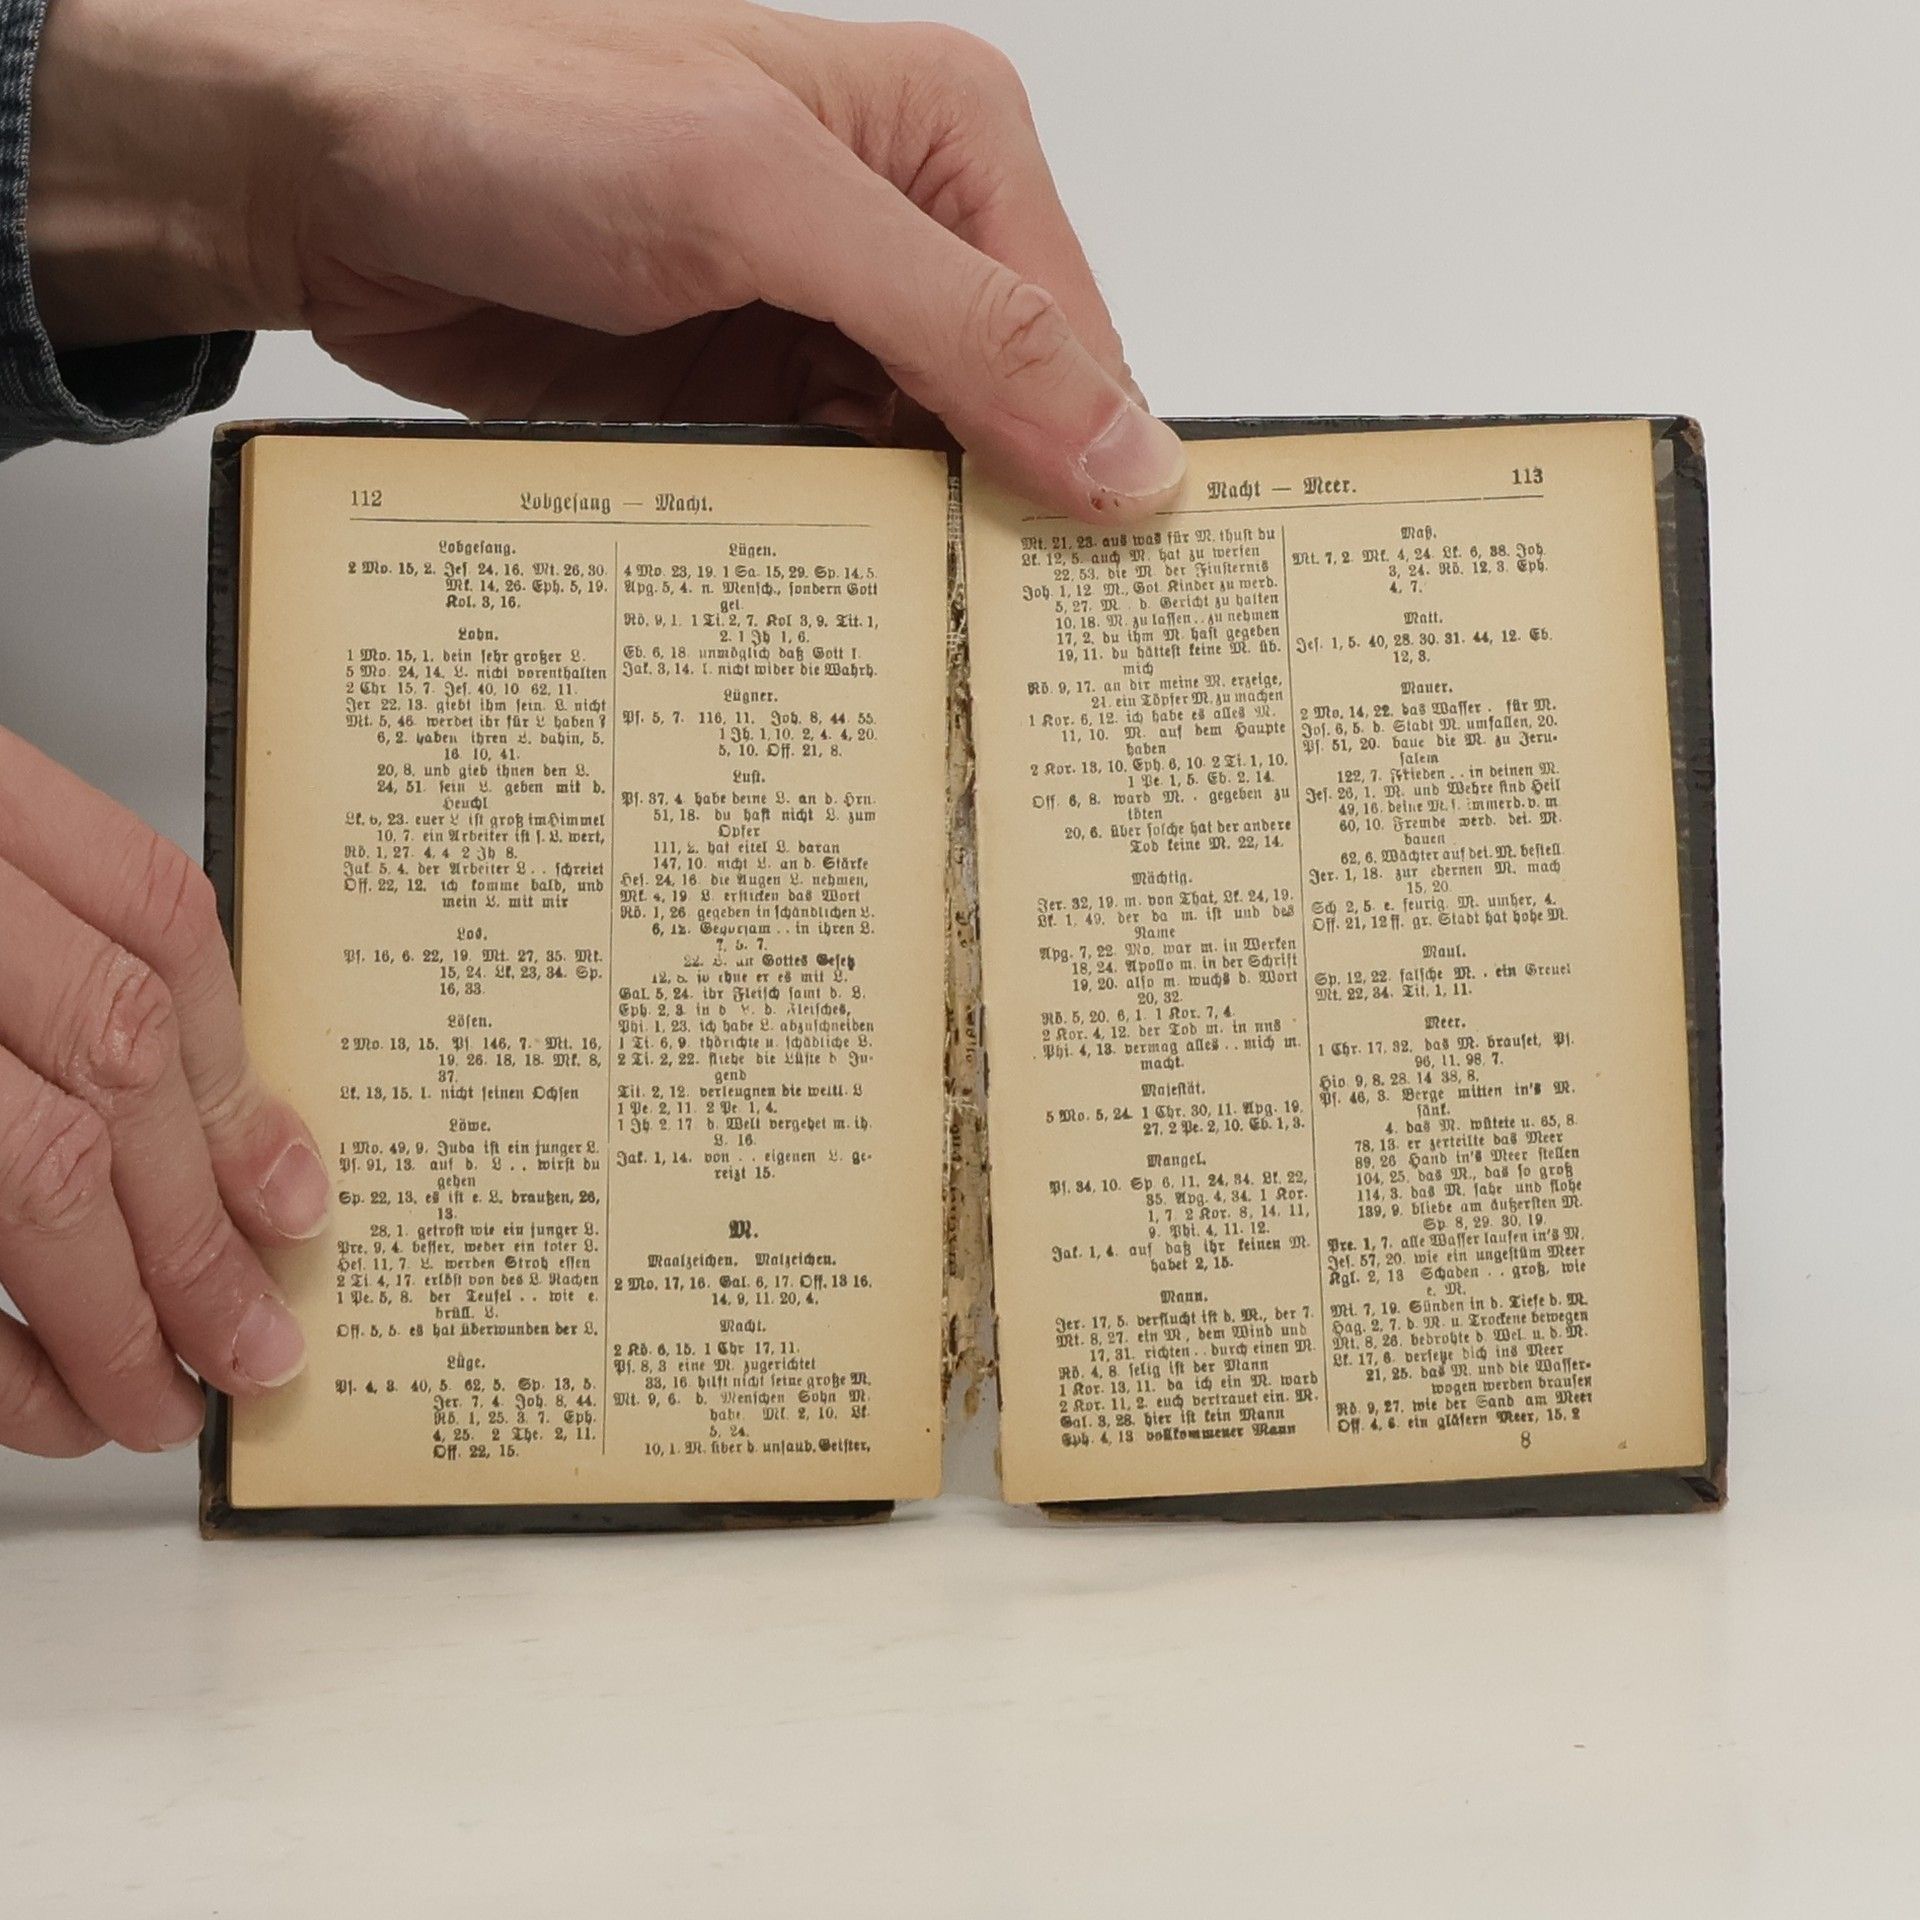 112 Lobgesang — Macht.
Lobgesang.
2 Mo. 15, 2. Jes. 24, 16. Mt. 26, 30.
Mk. 14, 26. Eph. 5, 19.
Kol. 3, 16.
Lohn.
1 Mo. 15, 1. dein sehr großer L.
5 Mo. 24, 14. L. nicht vorenthalten
2 Chr 15, 7. Jes. 40, 10 62, 11.
Jer 22, 13. giebt ihm sein. L. nicht
Mt. 5, 46. werdet ihr für L haben?
6, 2. haben ihren L. dahin, 5.
16. 10, 41.
20, 8. und gieb ihnen den L.
24, 51. sein L. geben mit d.
Heuchl
Lk. 6, 23. euer L ist groß im Himmel
10, 7. ein Arbeiter ist s. L. wert,
Rö. 1, 27. 4, 4 2 Jh 8.
Jak 5, 4. der Arbeiter L. . schreiet
Off. 22, 12. ich komme bald, und
mein L. mit mir
Los.
Ps. 16, 6. 22, 19. Mt. 27, 35. Mk.
15, 24. Lk, 23, 34. Sp.
16, 33.
Lösen.
2 Mo. 13, 15. Ps. 146, 7. Mt. 16,
19. 26. 18, 18. Mk. 8,
37.
Lk. 13, 15. l. nicht seinen Ochsen
Löwe.
1 Mo. 49, 9. Juda ist ein junger L.
Ps. 91, 13. auf d. L . . wirst du
gehen
Sp. 22, 13. es ist e. L. draußen, 26,
13.
28, 1. getrost wie ein junger L.
Pre. 9, 4. besser, weder ein toter L.
Hes. 11, 7. L. werden Stroh essen
2 Ti. 4, 17. erlöst von des L. Rachen
1 Pe. 5, 8. der Teufel . . wie e.
brüll. L.
Off. 5, 5. es hat überwunden der L.
Lüge.
Ps. 4, 3. 40, 5. 62, 5. Sp. 13, 5.
Jer. 7, 4. Joh. 8, 44.
Rö. 1, 25. 3, 7. Eph.
4, 25. 2 The. 2, 11.
Off. 22, 15.
Lügen.
4 Mo. 23, 19. 1 Sa. 15, 29. Sp. 14, 5.
Apg. 5, 4. n. Mensch., sondern Gott
gel.
Rö. 9, 1. 1 Ti. 2, 7. Kol 3, 9. Tit. 1,
2. 1 Jh 1, 6.
Eb. 6, 18. unmöglich daß Gott l.
Jak. 3, 14. l. nicht wider die Wahrh.
Lügner.
Ps. 5, 7. 116, 11. Joh. 8, 44. 55.
1 Jh. 1, 10. 2, 4. 4, 20.
5, 10. Off. 21, 8.
Lust.
Ps. 37, 4. habe deine L. an d. Hrn.
51, 18. du hast nicht L. zum
Opfer
111, 2. hat eitel L. daran
147, 10. nicht L. an d. Stärke
Hes. 24, 16. die Augen L. nehmen,
Mk. 4, 19 L. ersticken das Wort
Rö. 1, 26. gegeben in schändlichen L.
6, 12. Gehorsam . . in ihren L.
7, 5. 7.
22. L. an Gottes Gesetz
12, 8. so ohne er es mit L.
Gal. 5, 24. ihr Fleisch samt d. L.
Eph. 2, 3. in d L. d. Fleisches,
Phi. 1, 23. ich habe L. abzuschneiden
1 Ti. 6, 9. thörichte u. schädliche L.
2 Ti. 2, 22. fliehe die Lüste d Ju-
gend
Tit. 2, 12. verleugnen die weltl. L
1 Pe. 2, 11. 2 Pe 1, 4.
1 Jh. 2, 17. d. Welt vergehet m. ih.
L. 16.
Jak. 1, 14. von . . eigenen L. ge-
reizt 15.
M.
Maalzeichen. Malzeichen.
2 Mo. 17, 16. Gal. 6, 17. Off. 13 16.
14, 9. 11. 20, 4.
Macht.
2 Kö. 6, 15. 1 Chr 17, 11.
Ps. 8, 3 eine M. zugerichtet
33, 16. hilft nicht seine große M.
Mt. 9, 6. d. Menschen Sohn M.
habe. Mk. 2, 10. Lk.
5, 24.
10, 1. M. über d. unsaub. Geister,
Macht — Meer. 113
Mt. 21, 23. aus was für M. thust du
Lk. 12, 5. auch M. hat zu werfen
22, 53. die M. der Finsternis
Joh. 1, 12 M., Got. Kinder zu werd.
5, 27. M. . d. Gericht zu halten
10, 18. M. zu lassen . . zu nehmen
17, 2. du ihm M. hast gegeben
19, 11. du hättest keine M. üb.
mich
Rö. 9, 17. an dir meine M. erzeige,
21. ein Töpfer M. zu machen
1 Kor. 6, 12. ich habe es alles M.
11, 10. M. auf dem Haupte
haben
2 Kor. 13, 10. Eph. 6, 10. 2 Ti. 1, 10.
1 Pe. 1, 5. Eb. 2. 14.
Off. 6, 8. ward M. . gegeben zu
töten
20, 6. über solche hat der andere
Tod keine M. 22, 14.
Mächtig.
Jer. 32, 19. m. von That, Lk. 24, 19.
Lk. 1, 49. der da m. ist und des
Name
Apg. 7, 22. Mo. war m. in Werken
18, 24. Apollo m. in der Schrift
19, 20. also m. wuchs d. Wort
20, 32.
Rö. 5, 20. 6, 1. 1 Kor. 7, 4.
2 Kor. 4, 12. der Tod m. in uns
Phi. 4, 13. vermag alles . . mich m.
macht.
Majestät.
5 Mo. 5, 24. 1 Chr. 30, 11. Apg. 19,
27. 2 Pe. 2, 10. Eb. 1, 3.
Mangel.
Ps. 34, 10. Sp. 6, 11. 24, 34. Lk. 22,
35. Apg. 4, 34. 1 Kor.
1, 7. 2 Kor. 8, 14. 11,
9. Phi. 4, 11. 12.
Jak. 1, 4. auf daß ihr keinen M.
habet 2, 15.
Mann.
Jer. 17, 5. verflucht ist d. M., der 7.
Mt. 8, 27. ein M., dem Wind und
17, 31. richten . . durch einen M.
Rö. 4, 8. selig ist der Mann
1 Kor. 13, 11. da ich ein M. ward
2 Kor. 11, 2. euch vertrauet ein. M.
Gal. 3, 28. hier ist kein Mann
Eph. 4, 13 vollkommener Mann
Maß.
Mt. 7, 2. Mk. 4, 24. Lk. 6, 38. Joh.
3, 24. Rö. 12, 3. Eph.
4, 7.
Matt.
Jes. 1, 5. 40, 28. 30. 31. 44, 12. Eb.
12, 3.
Mauer.
2 Mo. 14, 22. das Wasser . für M.
Jos. 6, 5. d. Stadt M. umfallen, 20.
Ps. 51, 20. baue die M. zu Jeru-
salem
122, 7. Frieden . . in deinen M.
Jes. 26, 1. M. und Wehre sind Heil
49, 16. deine M. s. immerd. v. m.
60, 10. Fremde werd. dei. M.
bauen
62, 6. Wächter auf dei. M. bestell.
Jer. 1, 18. zur ehernen M. mach
15, 20.
Sch 2, 5. e. feurig. M. umher, 4.
Off. 21, 12 ff. gr. Stadt hat hohe M.
Maul.
Sp. 12, 22. falsche M. . ein Greuel
Mt. 22, 34. Tit. 1, 11.
Meer.
1 Chr. 17, 32. das M. brauset, Ps.
96, 11. 98, 7.
Hio. 9, 8. 28. 14 38, 8.
Ps. 46, 3. Berge mitten in's M.
sänk.
4. das M. wütete u. 65, 8.
78, 13. er zerteilte das Meer
89, 26 Hand in's Meer stellen
104, 25. das M., das so groß
114, 3. das M. sahe und flohe
139, 9. bliebe am äußersten M.
Sp. 8, 29. 30, 19.
Pre. 1, 7. alle Wasser laufen in's M.
Jes. 57, 20. wie ein ungestüm Meer
Kgl. 2, 13 Schaden . . groß, wie
e. M.
Mi. 7, 19. Sünden in d. Tiefe d. M.
Hag. 2, 7. d. M. u. Trockene bewegen
Mt. 8, 26. bedrohte d. Wel. u. d. M.
Lk. 17, 6. versetze dich ins Meer
21, 25. das M. und die Wasser-
wogen werden brausen
Rö. 9, 27. wie der Sand am Meer
Off. 4, 6. ein gläsern Meer, 15, 2
8